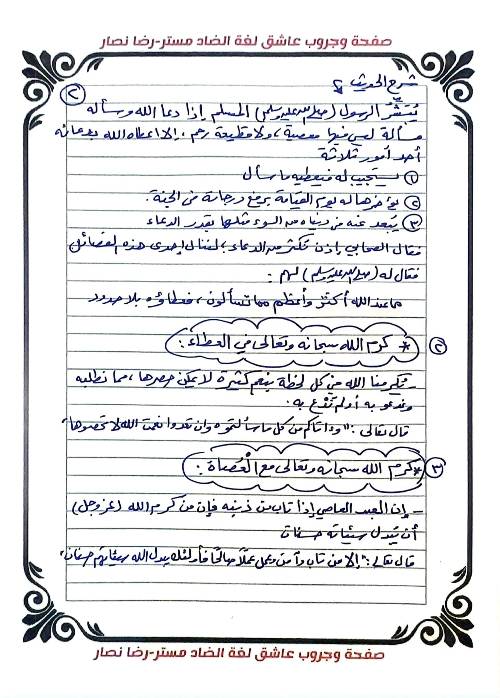 صفحة وجروب عاشق لغة الضاد مستر-رضا نصار
شرح الحديث :
٢
يُبَشِّرُ الرسول (صلى الله عليه وسلم) المسلم إذا دعا الله وسأله
مسألة ليس فيها معصية، ولا قطيعة رحم، إلا أعطاه الله بدعائه
أحد أمور ثلاثة
١ يستجيب له فيعطيه ما سأل
٢ يؤخرها له يوم القيامة برفع درجاته في الجنة.
٣ يبعد عنه من دنياه من السوء مثلها بقدر الدعاء
فقال الصحابي إذن نكثر من الدعاء؛ لننال إحدى هذه الفضائل
فقال له (صلى الله عليه وسلم) لهم:
ما عند الله أكثر وأعظم مما تسألون، فعطاؤه بلا حدود
٢ * كرم الله سبحانه وتعالى في العطاء:
- يكرمنا الله من كل لحظة بنعم كثيرة لا يمكن حصرها، مما نطلبه
وندعو به أو لم ندع به.
قال تعالى: "وءاتاكم من كل ما سألتموه وإن تعدوا نعمت الله لا تحصوها"
٣ * كرم الله سبحانه وتعالى مع العُصاة:
- إن العبد العاصي إذا تاب من ذنبه فإن من كرم الله (عز وجل)
أن يبدل سيئاته حسنات
قال تعالى: "إلا من تاب وآمن وعمل عملا صالحا فأولئك يبدل الله سيئاتهم حسنات"
صفحة وجروب عاشق لغة الضاد مستر-رضا نصار